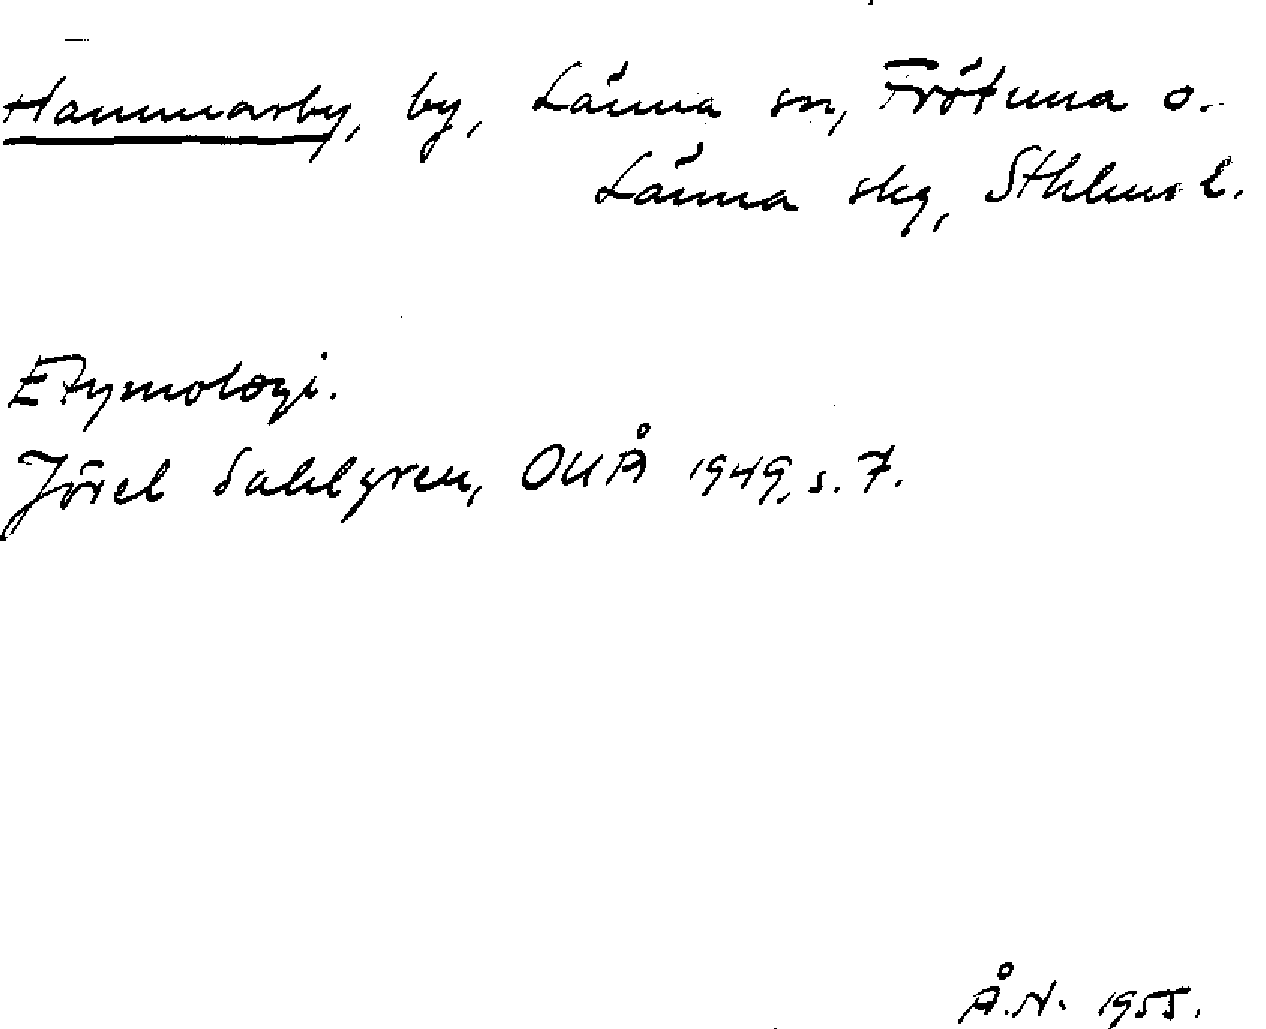 Hammarby, by, Länna sn, Frötuna o.
Länna skg, Sthlms l.
Etymologi.
Jöran Sahlgren, OUÅ 1949, s. 7.
Å.N. 1955.